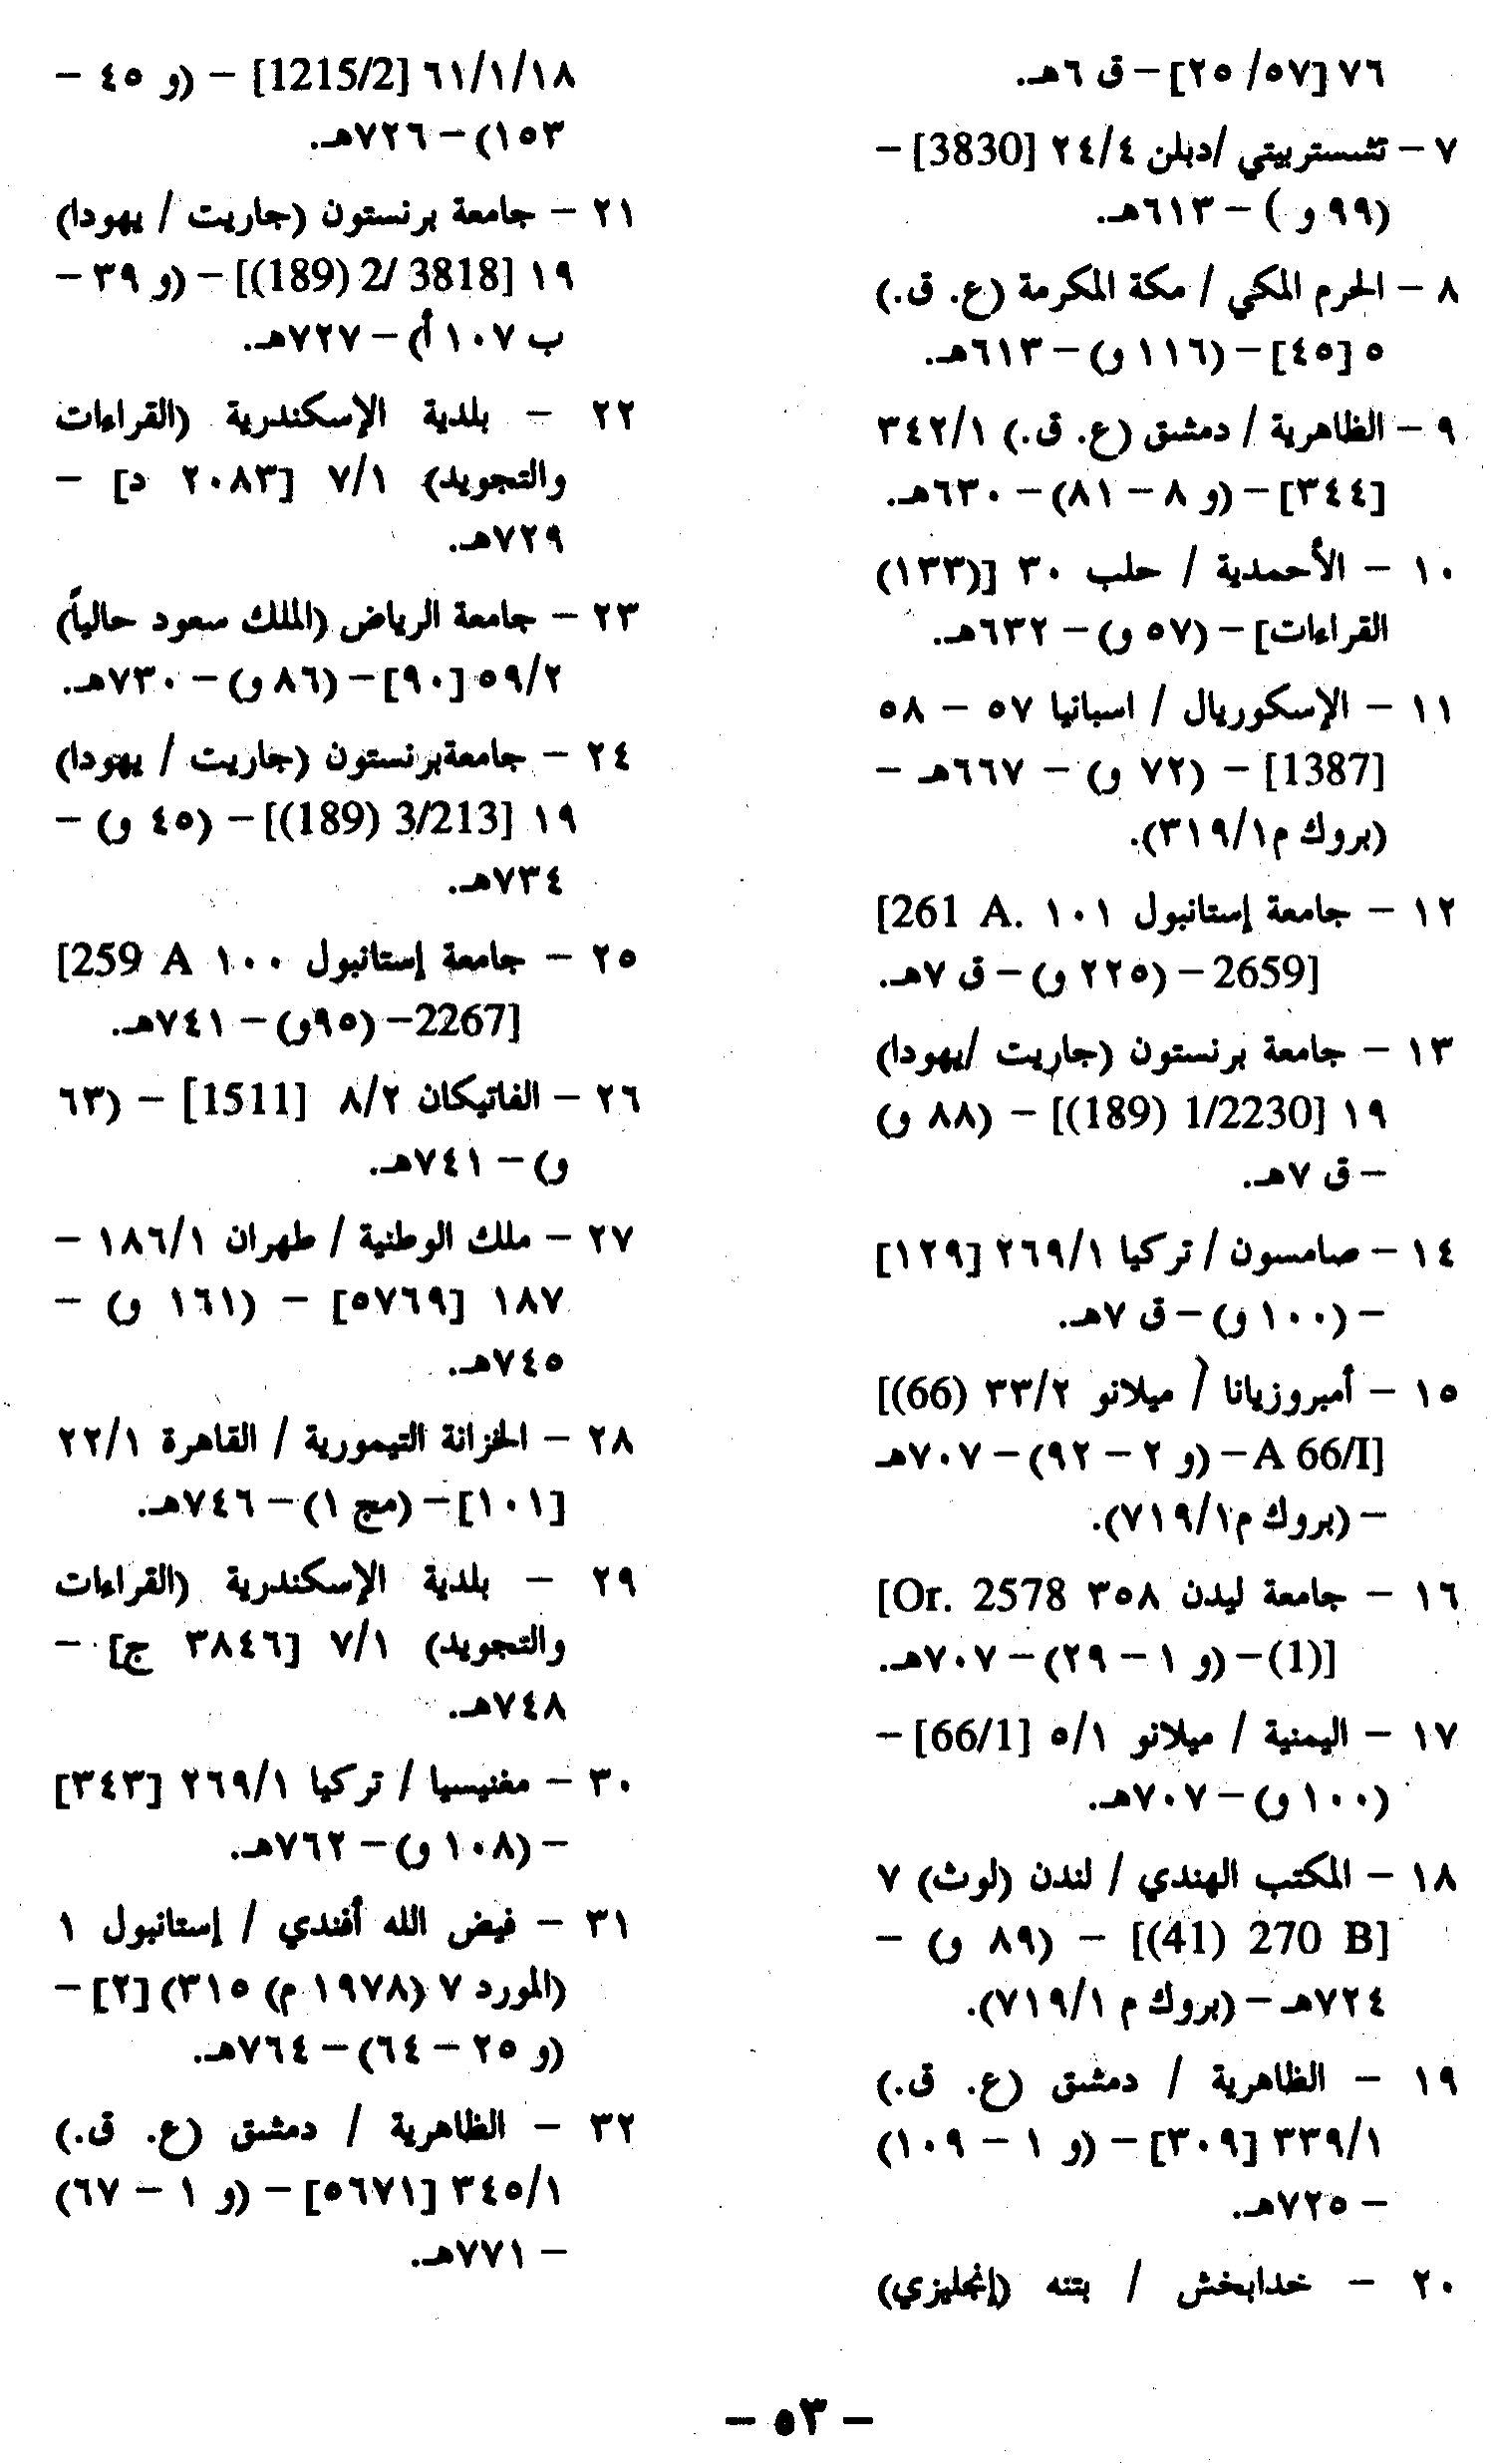 ٧٦ [٥٧/ ٢٥] – ق ٦هـ.
٧ – تشستربيتي /دبلن ٢٤/٤ [3830] –
(٩٩ و ) – ٦١٣هـ.
٨ – الحرم المكي / مكة المكرمة (ع. ق.)
٥ [٤٥] – (١١٦ و) – ٦١٣هـ.
٩ – الظاهرية / دمشق (ع. ق.) ٣٤٢/١
[٣٤٤] – (و ٨ – ٨١) – ٦٣٠هـ.
١٠ – الأحمدية / حلب ٣٠ [(١٣٣)
القراءات] – (٥٧ و) – ٦٣٢هـ.
١١ – الإسكوريال / اسبانيا ٥٧ – ٥٨
[1387] – (٧٢ و) – ٦٦٧هـ –
(بروك م٣١٩/١).
١٢ – جامعة إستانبول ١٠١ [261 A.
2659] – (٢٢٥ و) – ق ٧هـ.
١٣ – جامعة برنستون (جاريت /يهودا)
١٩ [(189) 1/2230] – (٨٨ و)
– ق ٧هـ.
١٤ – صامسون / تركيا ٢٦٩/١ [١٢٩]
– (١٠٠ و) – ق ٧هـ.
١٥ – أمبروزيانا / ميلانو ٣٣/٢ [(66)
A 66/I] – (و ٢ – ٩٢) – ٧٠٧هـ
– (بروك م٧١٩/١).
١٦ – جامعة ليدن ٣٥٨ [Or. 2578
(1)] – (و ١ – ٢٩) – ٧٠٧هـ.
١٧ – اليمنية / ميلانو ٥/١ [66/1] –
(١٠٠ و) – ٧٠٧هـ.
١٨ – المكتب الهندي / لندن (لوث) ٧
[(41) 270 B] – (٨٩ و) –
٧٢٤هـ – (بروك م ٧١٩/١).
١٩ – الظاهرية / دمشق (ع. ق.)
٣٣٩/١ [٣٠٩] – (و ١ – ١٠٩)
– ٧٢٥هـ.
٢٠ – خدابخش / بتنه (إنجليزي)
٦١/١/١٨ [1215/2] – (و ٤٥ –
١٥٣) – ٧٢٦هـ.
٢١ – جامعة برنستون (جاريت / يهودا)
١٩ [(189) 2/ 3818] – (و ٣٩ –
ب ١٠٧ أ) – ٧٢٧هـ.
٢٢ – بلدية الإسكندرية (القراءات
والتجويد) ٧/١ [٢٠٨٣ د] –
٧٢٩هـ.
٢٣ – جامعة الرياض (الملك سعود حالياً)
٥٩/٢ [٩٠] – (٨٦ و) – ٧٣٠هـ.
٢٤ – جامعةبرنستون (جاريت / يهودا)
١٩ [(189) 3/213] – (٤٥ و) –
٧٣٤هـ.
٢٥ – جامعة إستانبول ١٠٠ [259 A
2267] – (٩٥و) – ٧٤١هـ.
٢٦ – الفاتيكان ٨/٢ [1511] – (٦٣
و) – ٧٤١هـ.
٢٧ – ملك الوطنية / طهران ١٨٦/١ –
١٨٧ [٥٧٦٩] – (١٦١ و) –
٧٤٥هـ.
٢٨ – الخزانة التيمورية / القاهرة ٢٢/١
[١٠١] – (مج ١) – ٧٤٦هـ.
٢٩ – بلدية الإسكندرية (القراءات
والتجويد) ٧/١ [٣٨٤٦ ج] –
٧٤٨هـ.
٣٠ – مغنيسيا / تركيا ٢٦٩/١ [٣٤٣]
– (١٠٨ و) – ٧٦٢هـ.
٣١ – فيض الله أفندي / إستانبول ١
(المورد ٧ (١٩٧٨ م) ٣١٥) [٢] –
(و ٢٥ – ٦٤) – ٧٦٤هـ.
٣٢ – الظاهرية / دمشق (ع. ق.)
٣٤٥/١ [٥٦٧١] – (و ١ – ٦٧)
– ٧٧١هـ.
– ٥٣ –